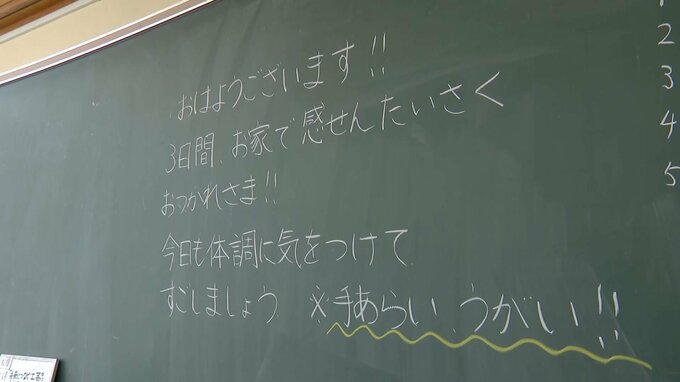 おはようございます!!
3日間、お家で感せんたいさく
おつかれさま!!
今日も体調に気をつけて
すごしましょう ※手あらい、うがい!!
2
3
4
5